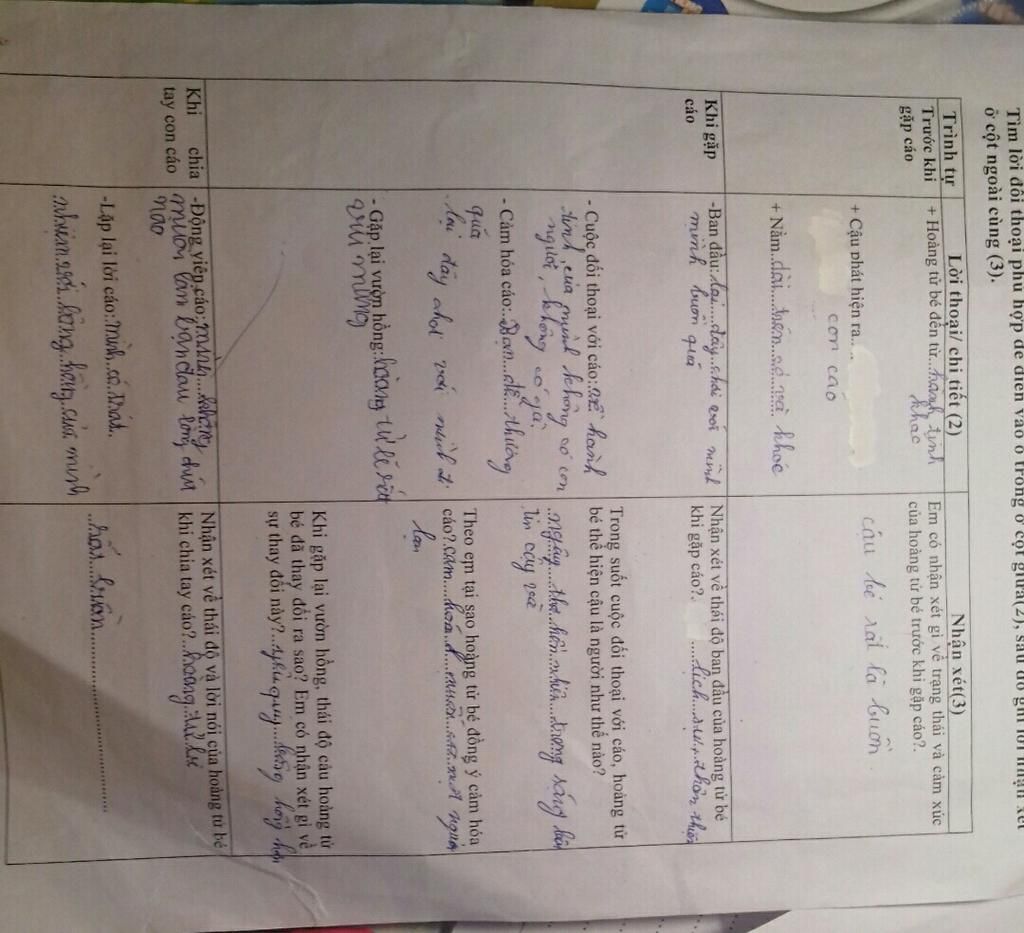 Tìm lời đối thoại phù hợp để điền vào ô trống ở cột giữa(2), sau đó ghi lời nhận xét
ở cột ngoài cùng (3).
Trình tự
Lời thoại/ chi tiết (2)
Nhận xét(3)
Trước khi
gặp cáo
+ Hoàng tử bé đến từ...hành tinh
khác
+ Cậu phát hiện ra....
con cáo
+ Nằm...dài...trên...cỏ và khóc
Em có nhận xét gì về trạng thái và cảm xúc
của hoàng tử bé trước khi gặp cáo?.
cậu bé rất là buồn.
Khi gặp
cáo
-Ban đầu:.lại....đây...chơi với mình
mình buồn quá
Nhận xét về thái độ ban đầu của hoàng tử bé
khi gặp cáo?. ....lịch...sự, thân thiện
- Cuộc đối thoại với cáo:.về hành
tinh của mình không có con
người, không có gà.
Trong suốt cuộc đối thoại với cáo, hoàng tử
bé thể hiện cậu là người như thế nào?
...ngây...thơ..hồn..nhiên....trong sáng
tin cậy và
- Cảm hóa cáo:..Bạn...dễ...thương
quá
lại đây chơi với mình đi
Theo em tại sao hoàng tử bé đồng ý cảm hóa
cáo?.cảm....hoá...muốn
bạn
- Gặp lại vườn hồng:.hoàng tử bé rất
vui mừng
Khi gặp lại vườn hồng, thái độ cảu hoàng tử
bé đã thay đổi ra sao? Em có nhận xét gì về
sự thay đổi này?...yêu quý....bông hồng hơn
Khi chia
tay con cáo
-Động viên cáo:.mình....không
muốn làm bạn đau lòng chút
nào
-Lặp lại lời cáo:..Mình...có..trách.
nhiệm..với..bông..hồng..của mình
Nhận xét về thái độ và lời nói của hoàng tử bé
khi chia tay cáo?...hoàng..tử bé
...rất....buồn......................................